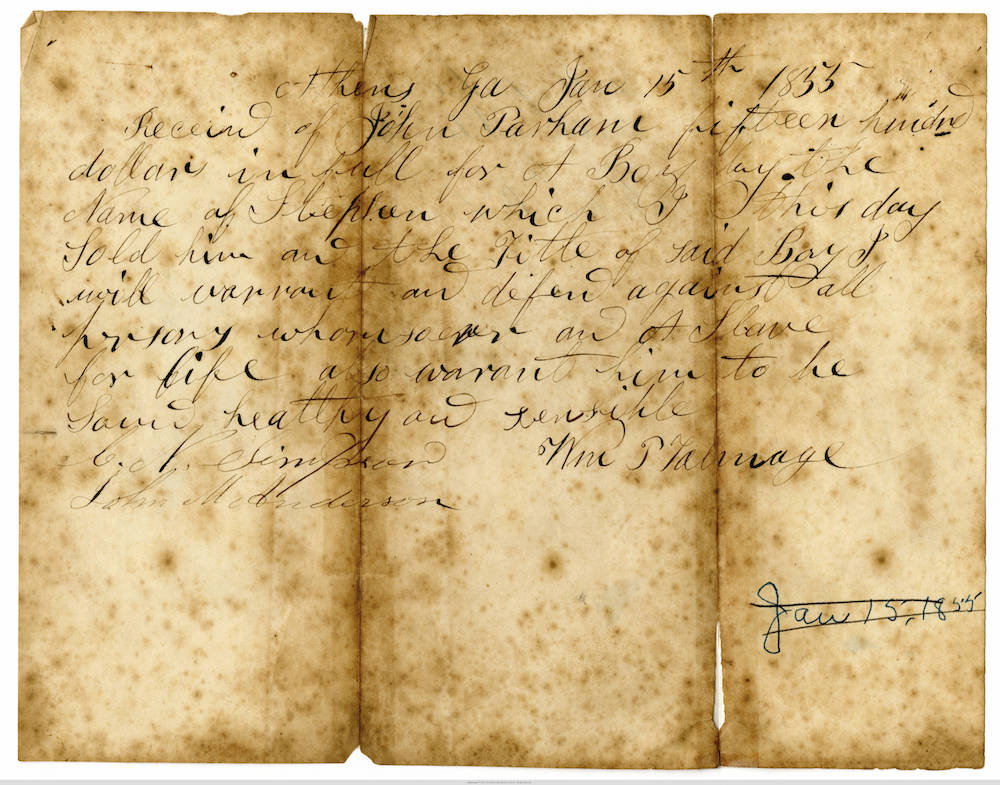 Athens Ga Jan 15th 1855
Receivd of John Parham fifteen hundred
dollars in full for A Boy by the
Name of Stephen which I this day
Sold him and the Title of said Boy I
will warrant and defend against all
persons whomsoever and A Slave
for life also warant him to be
Sound healthy and sensible
Wm P Talmage
Simpson
John McAnderson
Jan 15, 1855